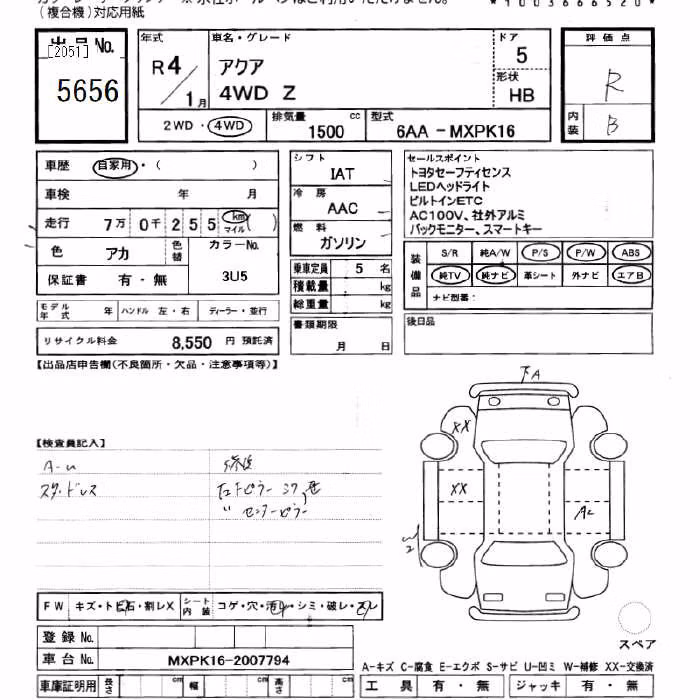 (複合機)対応用紙
*1003666520*
出品 No.
[2051]
5656
年式
R4/1月
車名・グレード
アクア
4WD Z
ドア
5
形状
HB
2WD・4WD
排気量
1500 cc
型式
6AA-MXPK16
評価点
R
内装
B
車歴 自家用・( )
車検 年 月
走行 7万0千255 km マイル( )
色 アカ
色替
カラーNo.
3U5
保証書 有・無
モデル年式 年
ハンドル 左・右
ディーラー・並行
リサイクル料金 8,550 円 預託済
シフト
IAT
冷房
AAC
燃料
ガソリン
乗車定員 5 名
積載量 kg
総重量 kg
書類期限
月 日
セールスポイント
トヨタセーフティセンス
LEDヘッドライト
ビルトインETC
AC100V、社外アルミ
バックモニター、スマートキー
装備品
S/R 純A/W P/S P/W ABS
純TV 純ナビ 革シート 外ナビ エアB
ナビ型番:
後日品
【出品店申告欄(不良箇所・欠品・注意事項等)】
【検査員記入】
A-u
スタッドレス
修復
右Fピラー
〃 センターピラー
下A
XX
XX
A2
W2
FW キズ・トビ石・割レX
シート内装 コゲ・穴・汚レ・シミ・破レ・スレ
登録 No.
車台 No. MXPK16-2007794
車庫証明用 長さ cm 幅 cm 高さ cm
スペア
A-キズ C-腐食 E-エクボ S-サビ U-凹ミ W-補修 XX-交換済
工具 有・無 ジャッキ 有・無